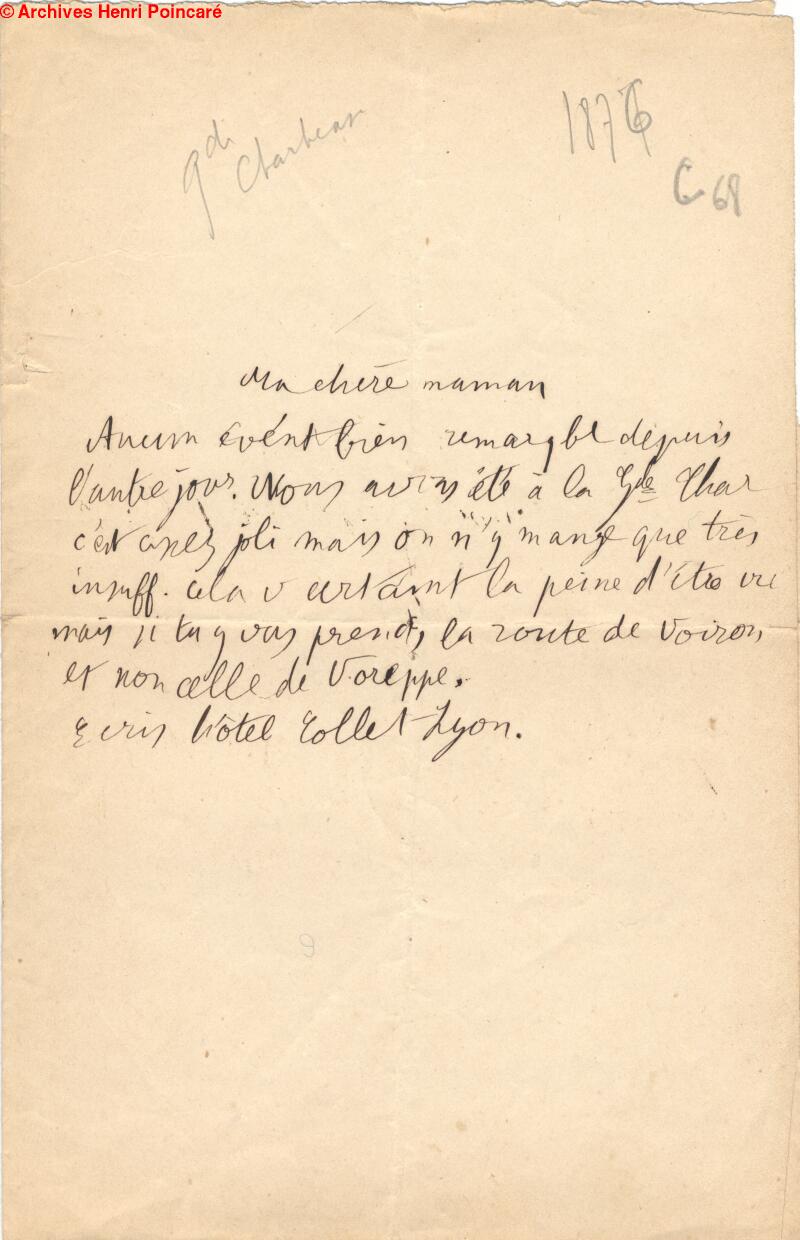 © Archives Henri Poincaré
gde Chartreuse
1876
C 68
Ma chère maman
Aucun évént bien remarqbl depuis
l'autre jour. Nous avons été à la Gde Char
c'est assez joli mais on n'y mange que très
insuff. cela v certaint la peine d'être vu
mais si tu y vas prends la route de Voiron
et non celle de Voreppe.
Ecris hôtel Collet Lyon.